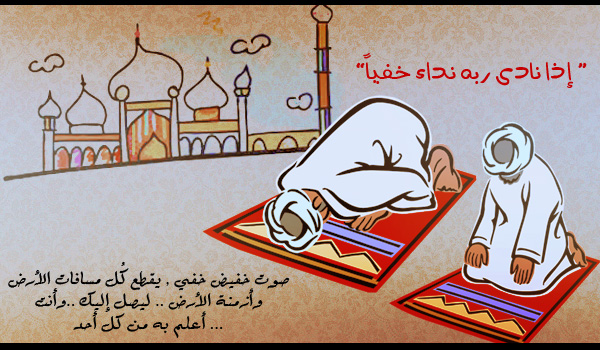 ” إذا نادى ربه نداء خفياً“
صوت خفيض خفي , يقطع كُل مسافات الأرض
وأزمنة الأرض .. ليصل إليك ..وأنت
أعلم به من كل أحد ...